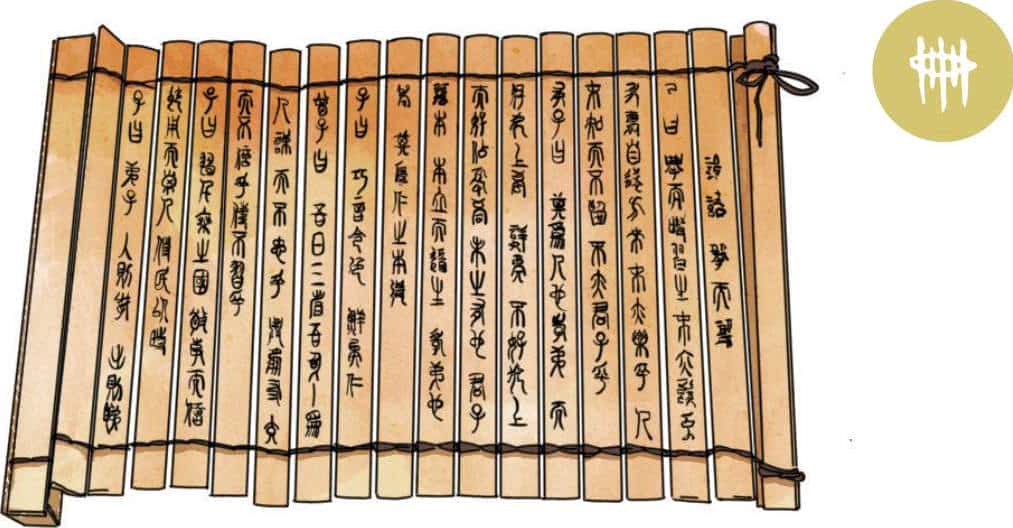 論語 學而
子曰 學而時習之 不亦說乎
有朋自遠方來 不亦樂乎 人
不知而不慍 不亦君子乎
有子曰 其爲人也孝弟 而
好犯上者 鮮矣 不好犯上
而好作亂者 未之有也 君子
務本 本立而道生 孝弟也
者 其爲仁之本與
子曰 巧言令色 鮮矣仁
曾子曰 吾日三省吾身 爲
人謀 而不忠乎 與朋友交
而不信乎 傳不習乎
子曰 道千乘之國 敬事而信
節用而愛人 使民以時
子曰 弟子 入則孝 出則弟
冊